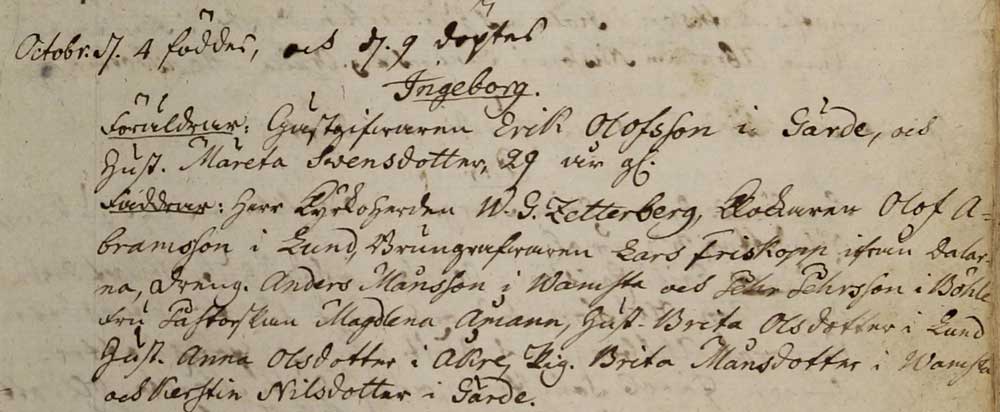 Octobr. d. 4 föddes, och d. 9 döptes
Ingeborg.
Föräldrar: Gästgifvaren Erik Olofsson i Gärde, och
Hust. Märeta Swensdotter, 29 år gl.
Faddrar: Herr Kyrkoherden W. G. Zetterberg, Klockaren Olof A-
bramsson i Lund, Brungrafvaren Lars Friskopp ifrån Dalar-
na, Dreng. Anders Månsson i Wamsta och Pehr Pehrsson i Böhle
Fru Pastorskan Magdlena Amann, Hust. Brita Olsdotter i Lund
Hust. Anna Olsdotter i Åkre, Pig. Brita Månsdotter i Wamsta
och Kerstin Nilsdotter i Gärde.